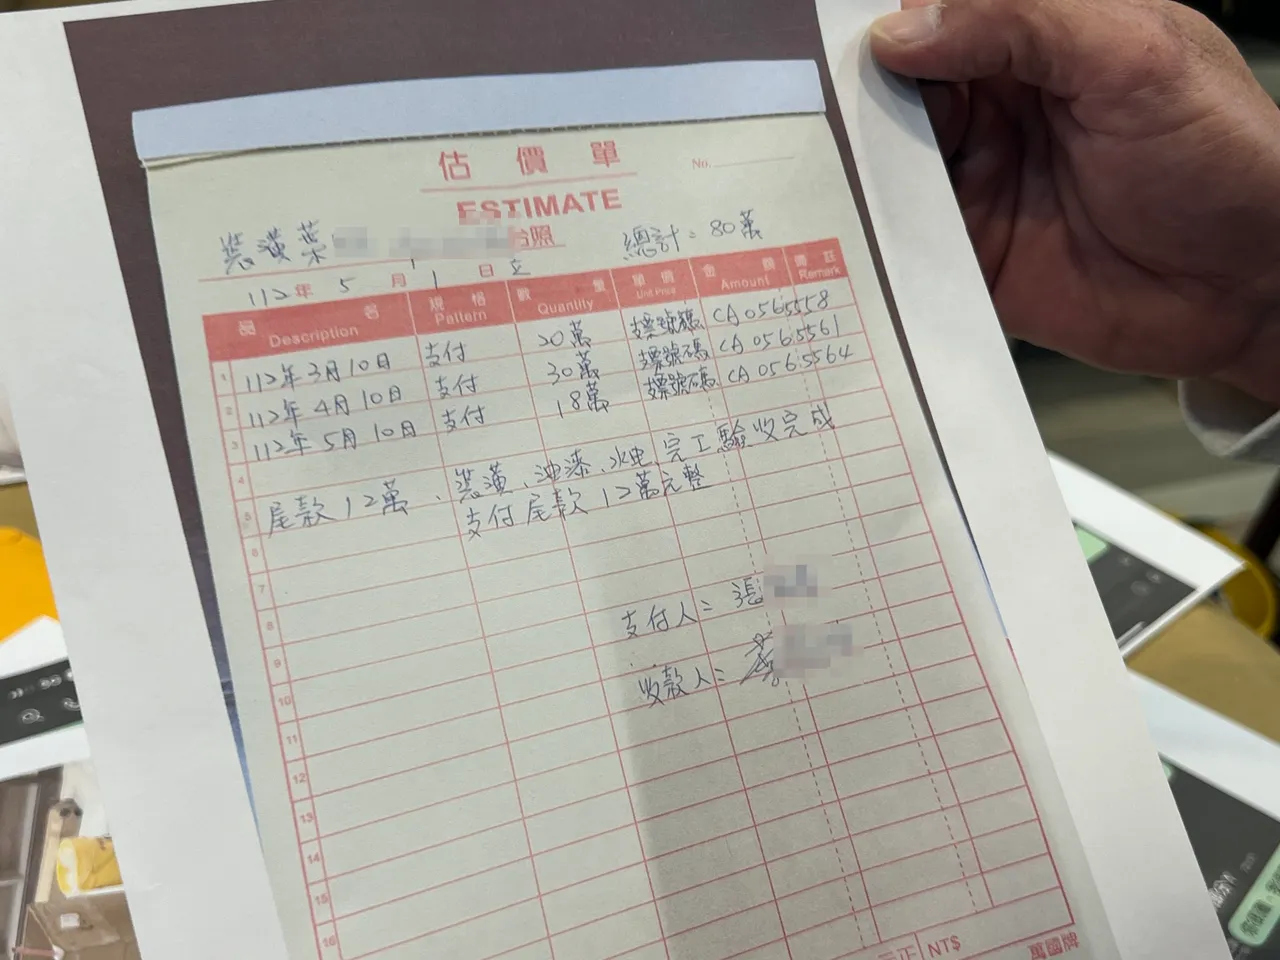 估價單
No.
ESTIMATE
裝潢葉 台照
總計:80萬
112年 5 月 1 日 立
品名 規格 數量 單價 金額 備註
Description Pattern Quantity Unit Price Amount Remark
1 112年3月10日 支付 20萬 支票號碼 CA0565558
2 112年4月10日 支付 30萬 支票號碼 CA0565561
3 112年5月10日 支付 18萬 支票號碼 CA0565564
4
5 尾款12萬、裝潢、油漆、水电完工驗收完成
支付尾款12萬元整
6
7
8
支付人:張
9
10
收款人:葉
11
12
13
14
15
16
元正 NT$ 萬國牌